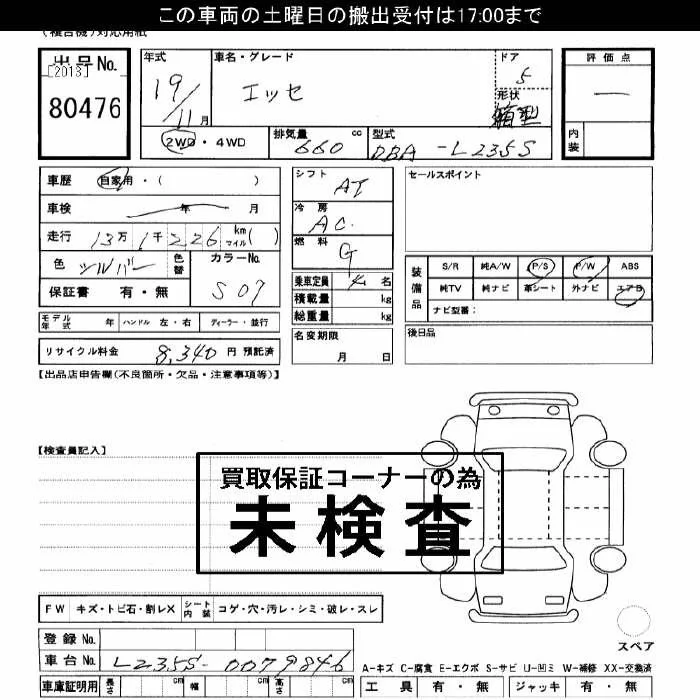 この車両の土曜日の搬出受付は17:00まで
(複合機)対応用紙
出品No. [2013] 80476
年式 19/11月
車名・グレード エッセ
ドア 5
形状 箱型
評価点 ―
内装
2WD・4WD
排気量 660 cc
型式 DBA-L235S
車歴 自家用・( )
車検 年 月
走行 13万1千226 km マイル( )
色 シルバー 色替 カラーNo. S07
保証書 有・無
シフト AT
冷房 AC
燃料 G
乗車定員 4名
積載量 kg
総重量 kg
セールスポイント
装備品 S/R 純A/W P/S P/W ABS
純TV 純ナビ 革シート 外ナビ エアB
ナビ型番:
モデル年式 年 ハンドル 左・右 ディーラー・並行
名変期限 月 日
後日品
リサイクル料金 8,340円 預託済
【出品店申告欄(不良箇所・欠品・注意事項等)】
【検査員記入】
買取保証コーナーの為
未検査
FW キズ・トビ石・割レX シート内装 コゲ・穴・汚レ・シミ・破レ・スレ
スペア
登録No.
車台No. L235S-0079846
A-キズ C-腐食 E-エクボ S-サビ U-凹ミ W-補修 XX-交換済
車庫証明用 長さ cm 幅 cm 高さ cm
工具 有・無 ジャッキ 有・無